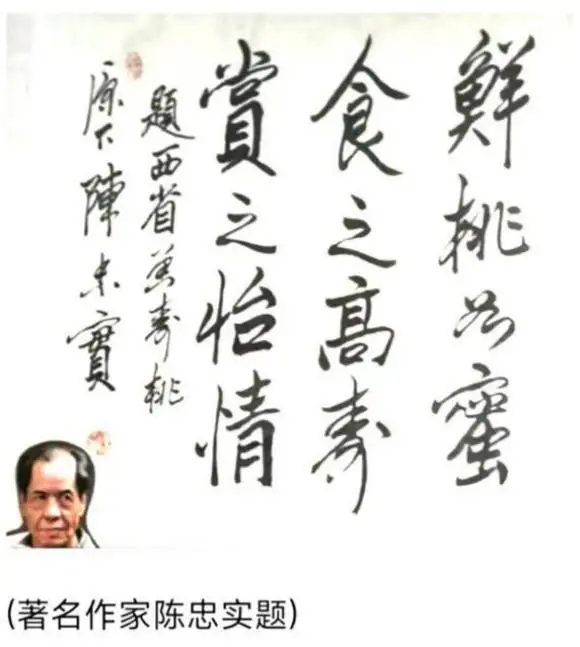 鮮桃蜜
食之高壽
賞之怡情
題西省萬壽桃
原下陳忠實
(著名作家陈忠实题)